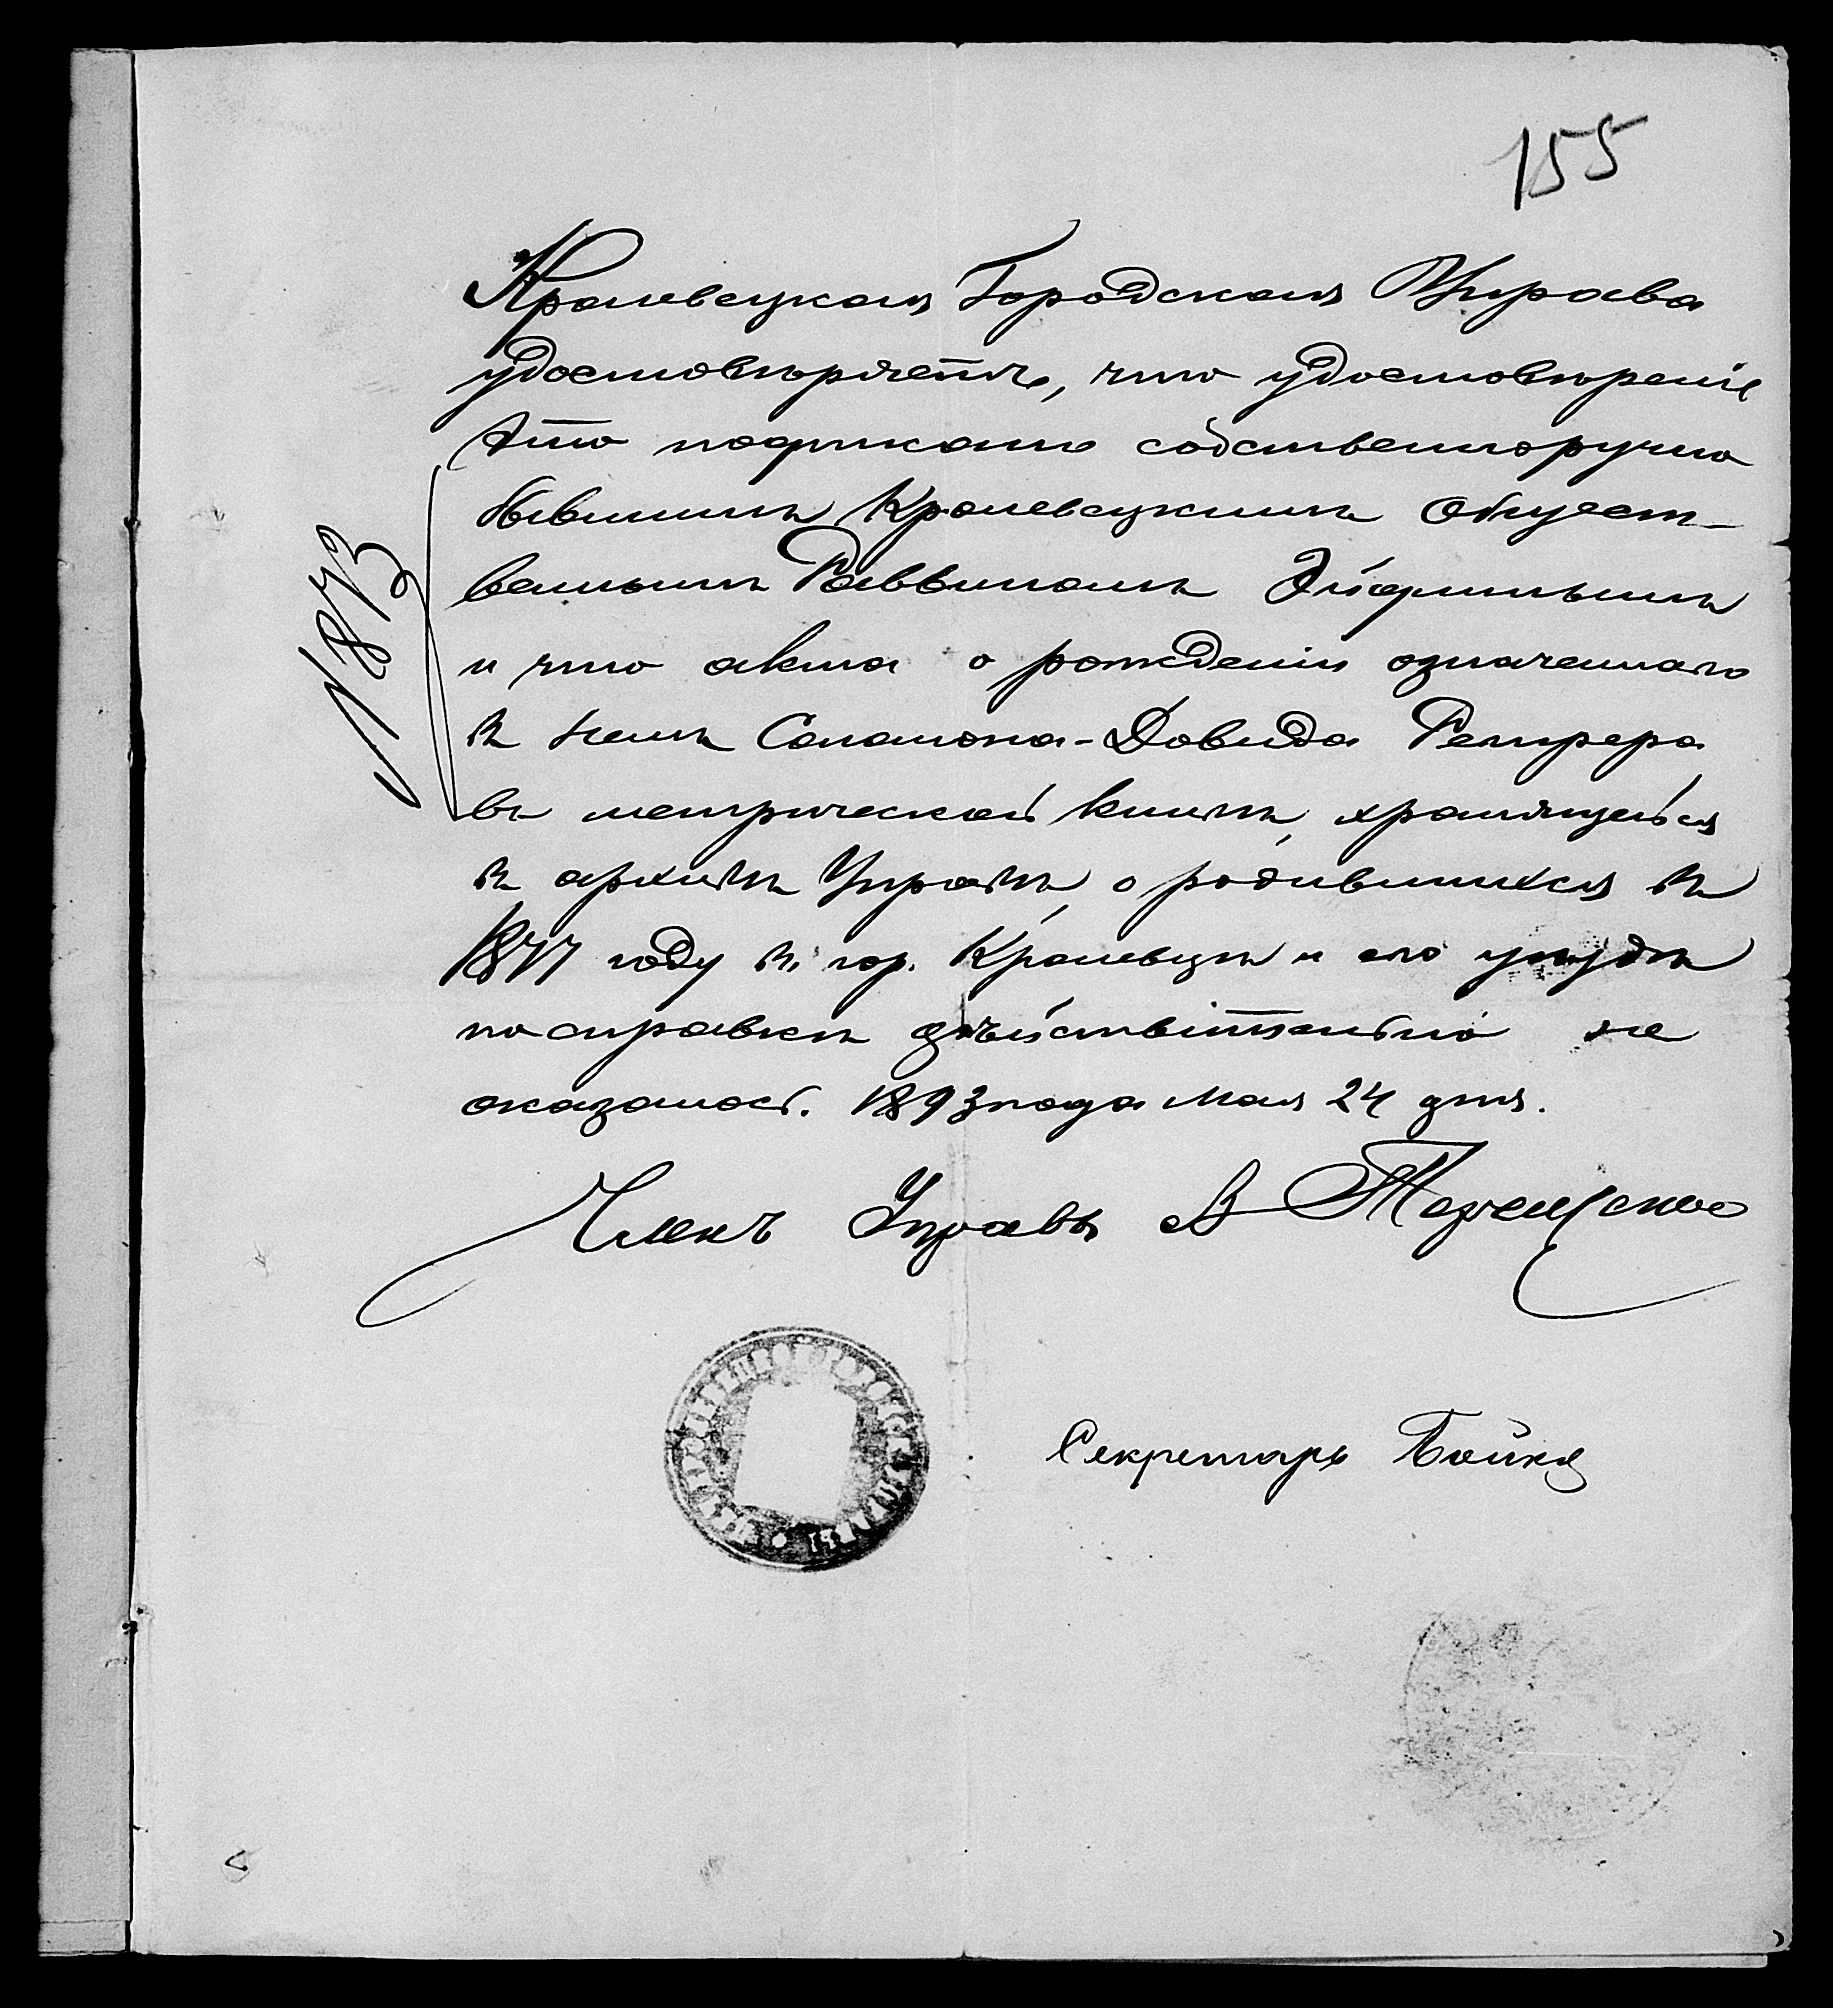 155
Кролевецкая Городская Управа
удостовѣряетъ, что удостовѣреніе
это подписано собственноручно
бывшимъ Кролевецкимъ Общест-
веннымъ Раввиномъ
и что акта о рожденіи означеннаго
въ немъ Соломона-Довида
въ метрической книгѣ, хранящейся
въ архивѣ Управы, о родившихся въ
1877 году въ гор. Кролевцѣ и его уѣздѣ
по справкѣ дѣйствительно не
оказалось. 1893 года мая 24 дня.
Членъ Управы В
Секретарь Бойко
№ 873